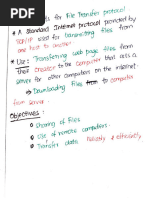 stands for File Transfer protocol
* A standard Internet protocol provided by
TCP/IP used for transmitting files from
one host to another.
* Use: Transferring web page files from
their creator to the computer that acts a
server for other computers on the internet.
→ Downloading files to computer
from server.
Objectives:
Sharing of files
Use of remote computers.
Transfer data reliably & efficiently